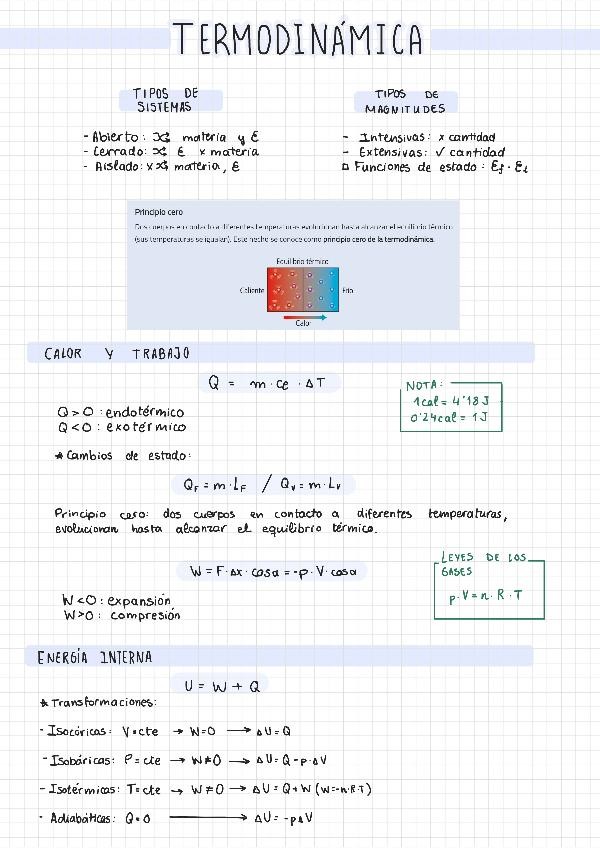 TERMODINÁMICA
TIPOS DE
SISTEMAS
- Abierto: materia y E
- Cerrado: E x materia
- Aislado: x materia, E
TIPOS DE
MAGNITUDES
- Intensivas: x cantidad
- Extensivas: ✓ cantidad
Funciones de estado:
Principio cero
Dos cuerpos en contacto a diferentes temperaturas evolucionan hasta alcanzar el equilibrio térmico
(sus temperaturas se igualan). Este hecho se conoce como principio cero de la termodinámica.
Equilibrio térmico
Caliente
Frío
Calor
CALOR Y TRABAJO
Q = m · ce · ΔT
NOTA:
1cal = 4'18 J
0'24cal = 1 J
Q > 0 : endotérmico
Q < 0 : exotérmico
★ Cambios de estado:
QF = m · LF / Qv = m · Lv
Principio cero: dos cuerpos en contacto a diferentes temperaturas,
evolucionan hasta alcanzar el equilibrio térmico.
W = F · Δx · cosα = -p · V · cosα
LEYES DE LOS
GASES
p · V = n · R · T
W < 0 : expansión
W > 0 : compresión
ENERGÍA INTERNA
U = W + Q
★ Transformaciones:
- Isocóricas: V = cte → W = 0 → ΔU = Q
- Isobáricas: P = cte → W ≠ 0 → ΔU = Q - p · ΔV
- Isotérmicas: T = cte → W ≠ 0 → ΔU = Q + W (W = -n · R · T)
- Adiabáticas: Q = 0 → ΔU = -pΔV